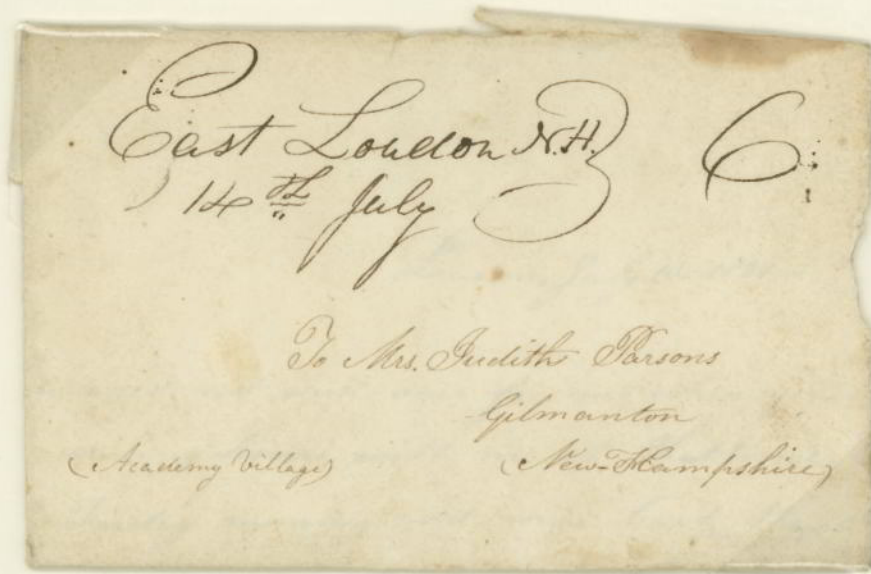 East Loudon N.H. 6
14th July
To Mrs. Judith Parsons
Gilmanton
(Academy Village) (New-Hampshire)